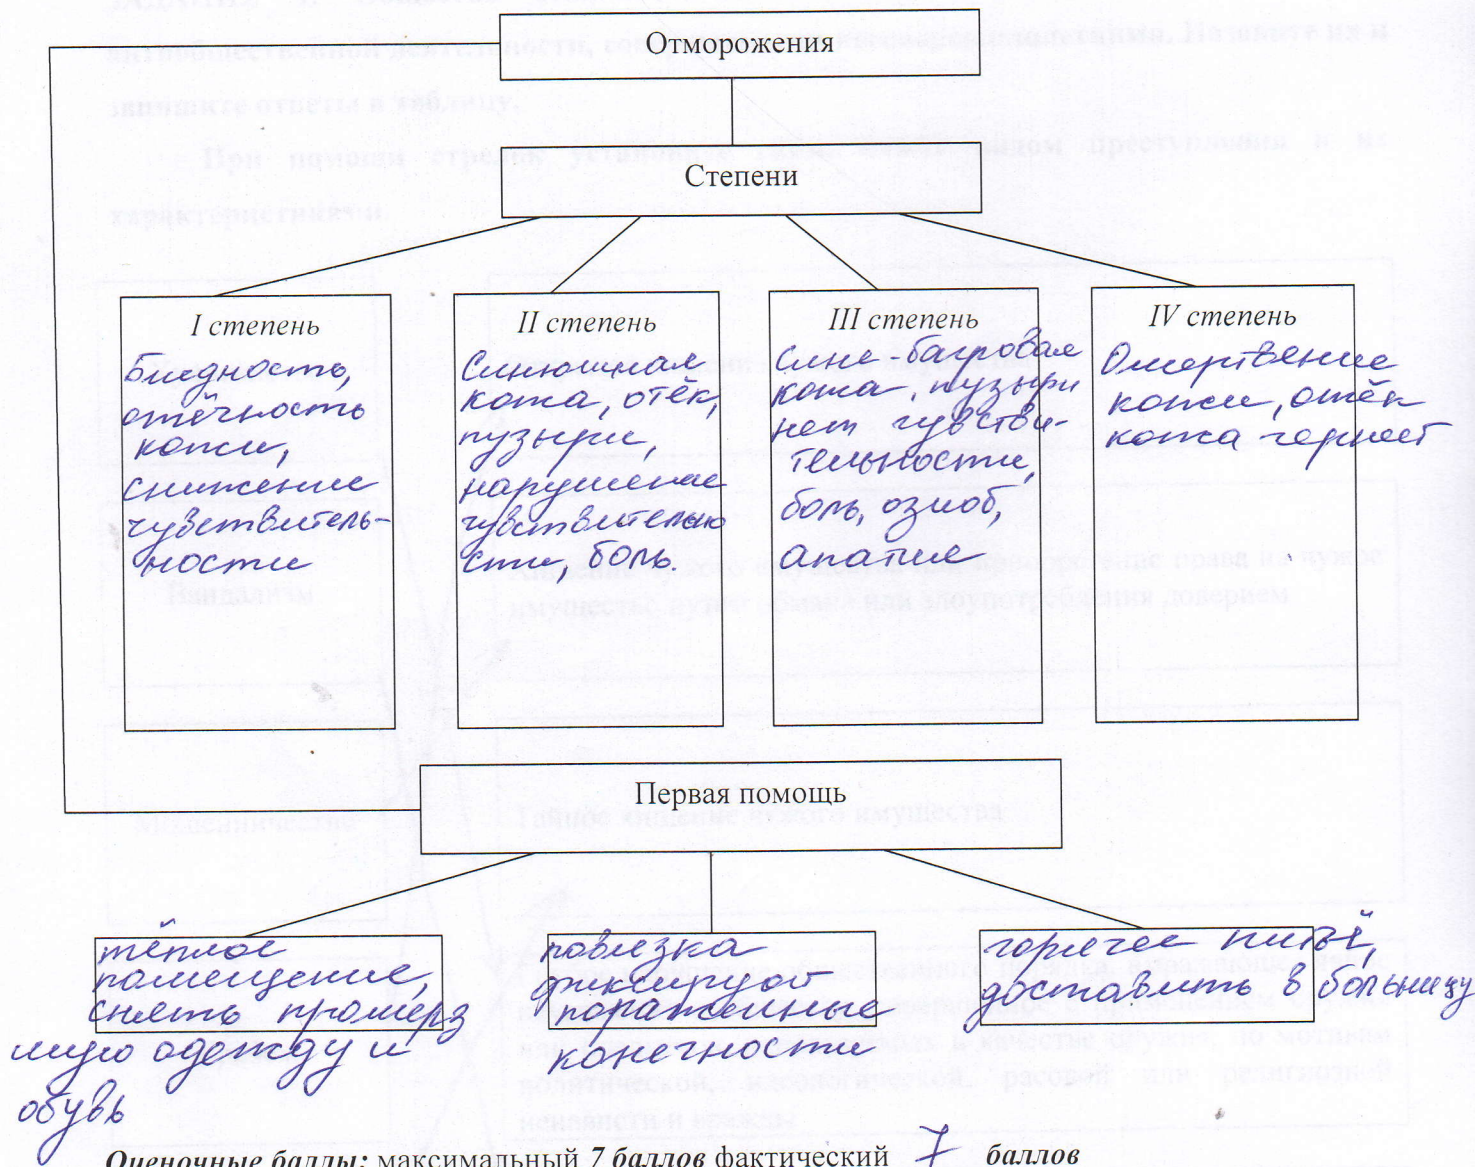 Отморожения
Степени
I степень
Бледность,
отёчность
кожи,
снижение
чувствитель-
ности
II степень
Синюшная
кожа, отёк,
пузыри,
нарушение
чувствительно
сти, боль.
III степень
Сине-багровая
кожа, пузыри
нет чувстви-
тельности,
боль, озноб,
апатие
IV степень
Омертвение
кожи, отёк
кожа чернеет
Первая помощь
тёплое
помещение,
снять промерз
шую одежду и
обувь
повязка
фиксирую
пораженные
конечности
горячее питьё,
доставить в больницу
Оценочные баллы: максимальный 7 баллов фактический 7 баллов